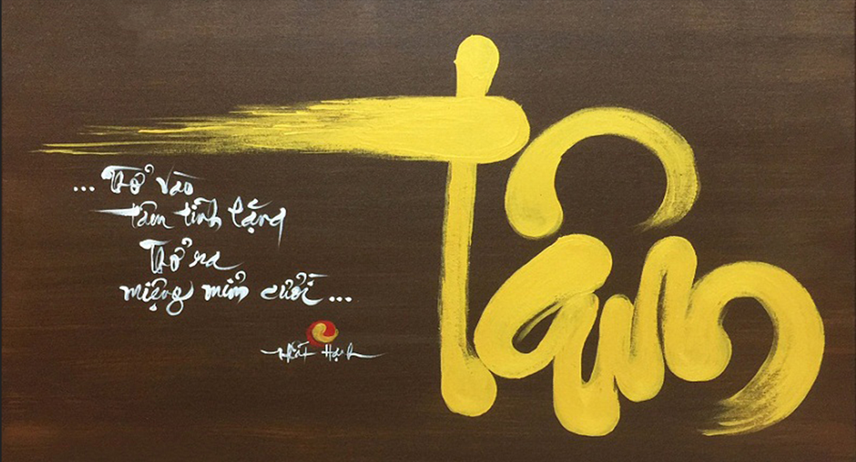 ... Thở vào
tâm tĩnh lặng
Thở ra
miệng mỉm cười ...
Nhất Hạnh
tâm